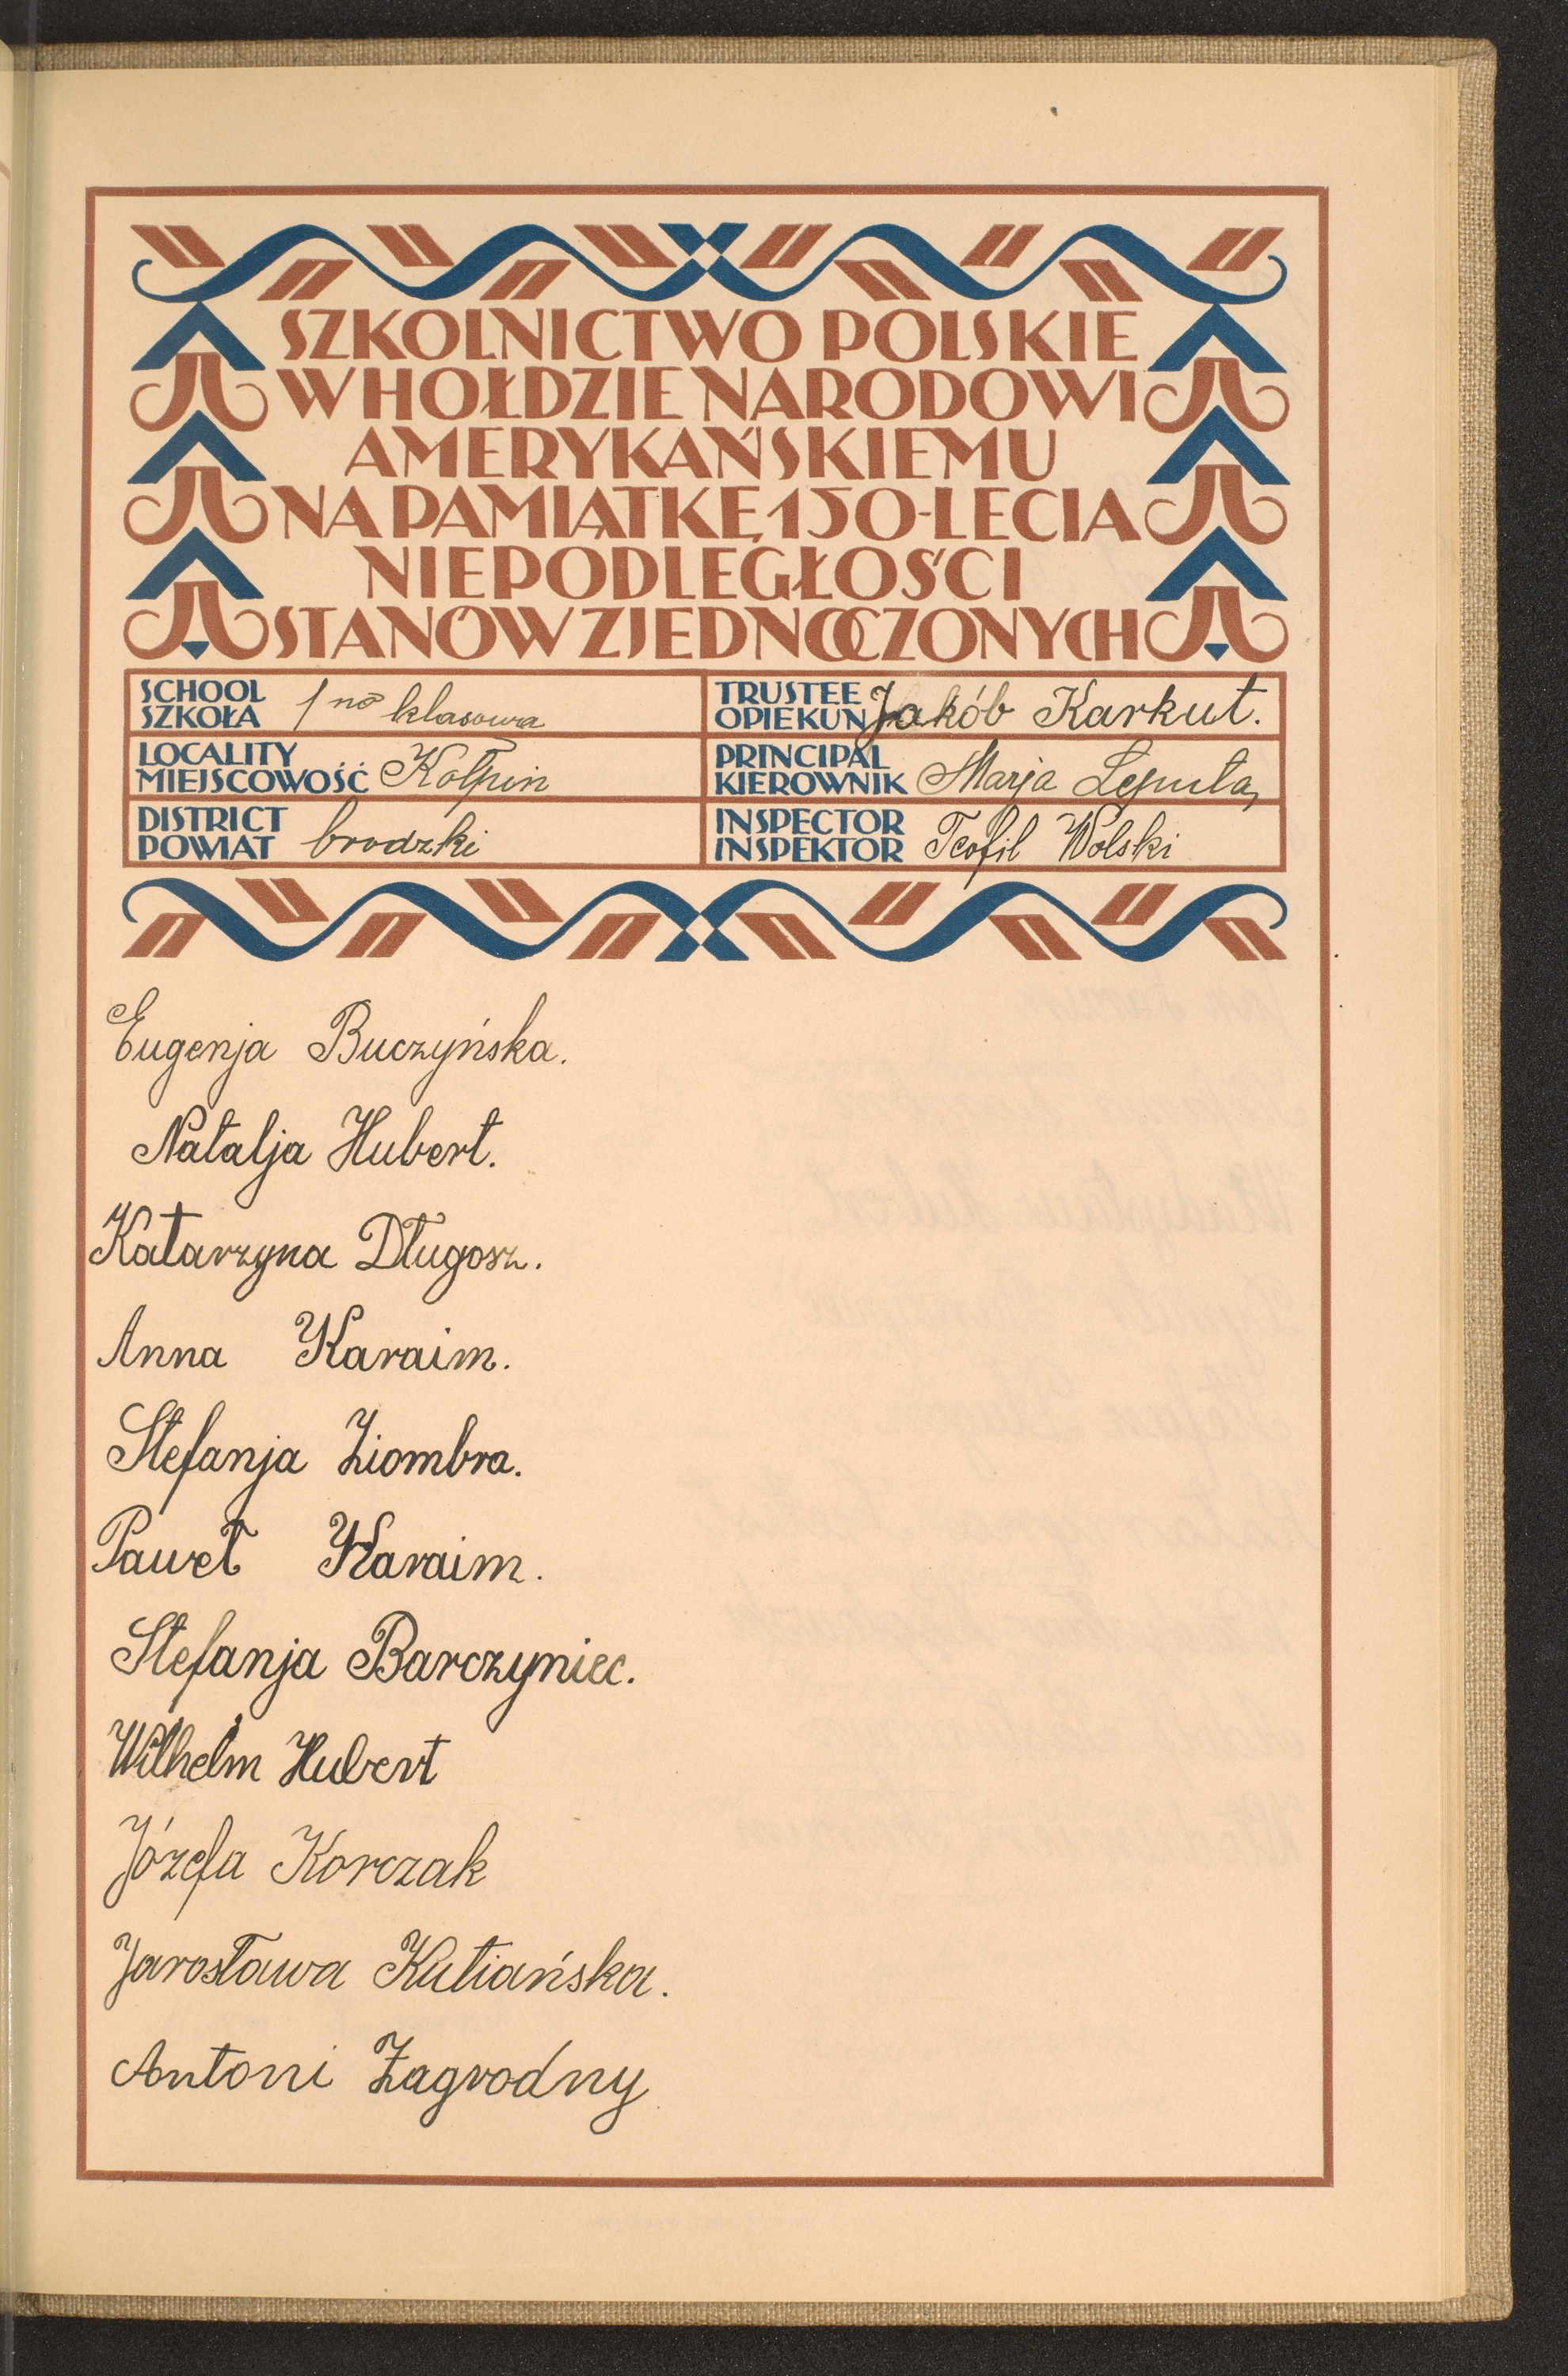 SZKOLNICTWO POLSKIE
W HOŁDZIE NARODOWI
AMERYKAŃSKIEMU
NA PAMIĄTKĘ 150-LECIA
NIEPODLEGŁOŚCI
STANÓW ZJEDNOCZONYCH
SCHOOL
SZKOŁA 1 no klasowa
TRUSTEE
OPIEKUN Jakób Karkut.
LOCALITY
MIEJSCOWOŚĆ Kołpin
PRINCIPAL
KIEROWNIK Marja
DISTRICT
POWIAT brodzki
INSPECTOR
INSPEKTOR Teofil Wolski
Eugenja Buczyńska.
Natalja Hubert.
Katarzyna Długosz.
Anna Karaim.
Stefanja Ziombra.
Paweł Karaim.
Stefanja Barczyniec.
Wilhelm Hubert
Józefa Korczak
Jarosława Kutiańska.
Antoni Zagrodny